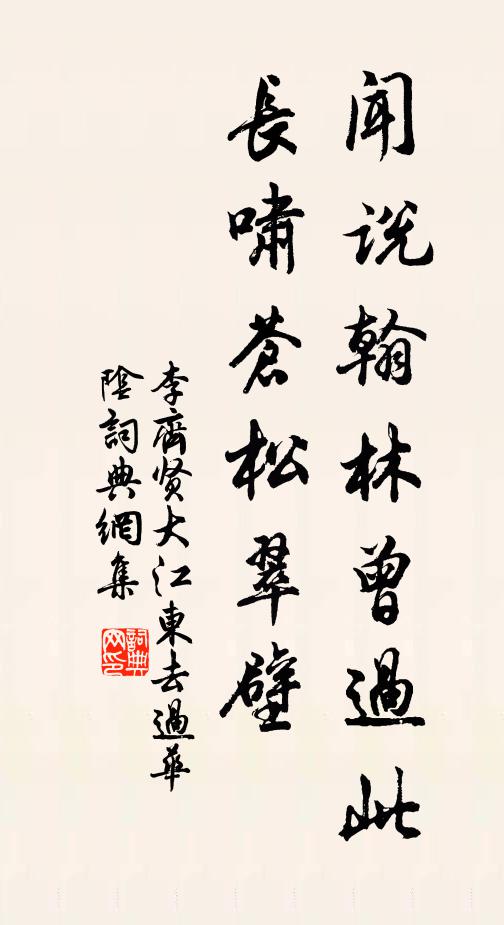 聞説翰林曾過此
長嘯蒼松翠壁
李齊贤大江東去過華
陰詞典網集
詞典网印